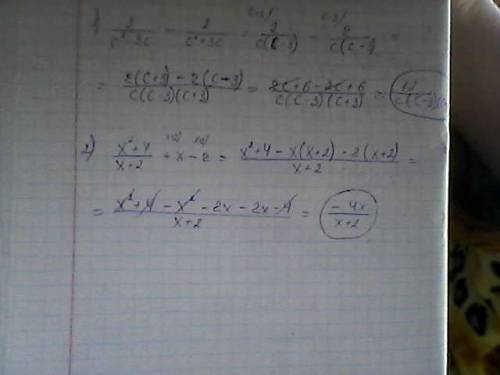 1) 2/(c²-3c) - 2/(c²+3c) = 2/(c(c-3)) - 2/(c(c+3)) =
= (2(c+3) - 2(c-3))/(c(c-3)(c+3)) = (2c+6-2c+6)/(c(c-3)(c+3)) = 12/(c(c-3)(c
2) (x²+4)/(x+2) + x - 2 = (x²+4-x(x+2)-2(x+2))/(x+2) =
= (x²+4-x²-2x-2x-4)/(x+2) = (-4x)/(x+2)